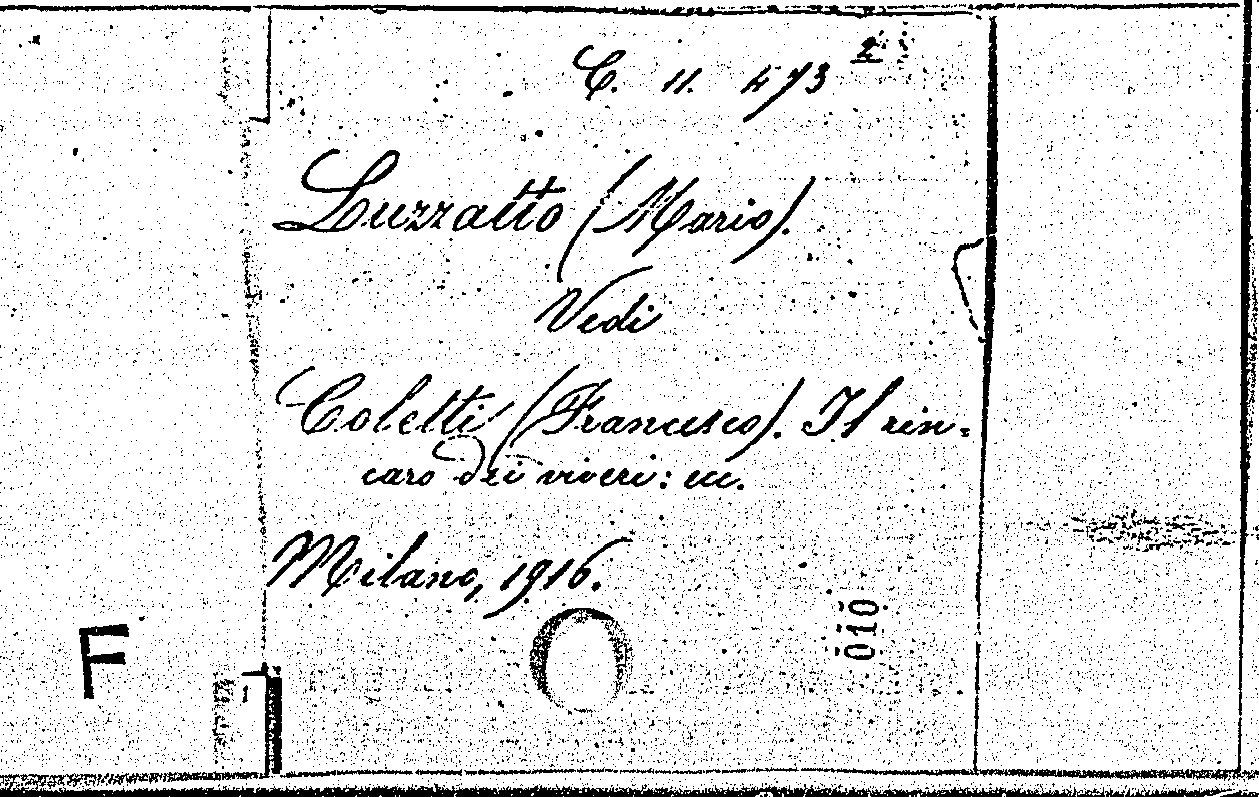 C. 11. 473²
Luzzatto (Mario).
Vedi
Coletti (Francesco). Il rin-
caro dei viveri: ecc.
Milano, 1916.
010
F
1